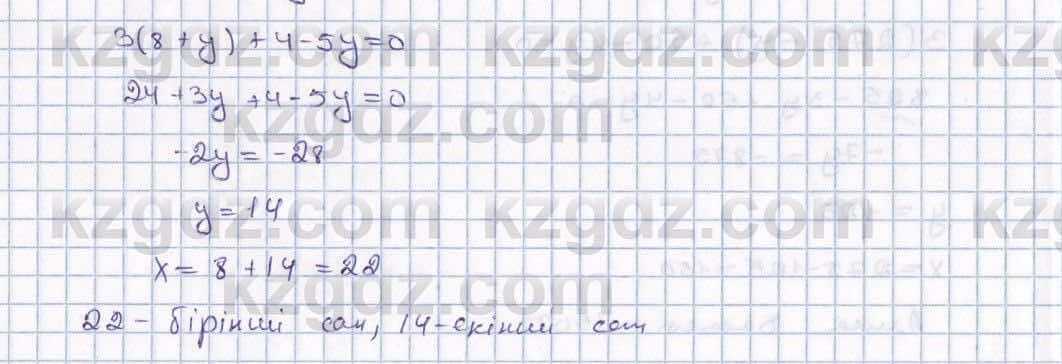 3(8+y)+4-5y=0
24+3y+4-5y=0
-2y=-28
y=14
x=8+14=22
22-бірінші сан, 14-екінші сан
kzgdz.com kzgdz.com kz
kzgdz.com kzgdz.com
kzgdz.com kzgdz.com kz
kzgdz.com kzgdz.com